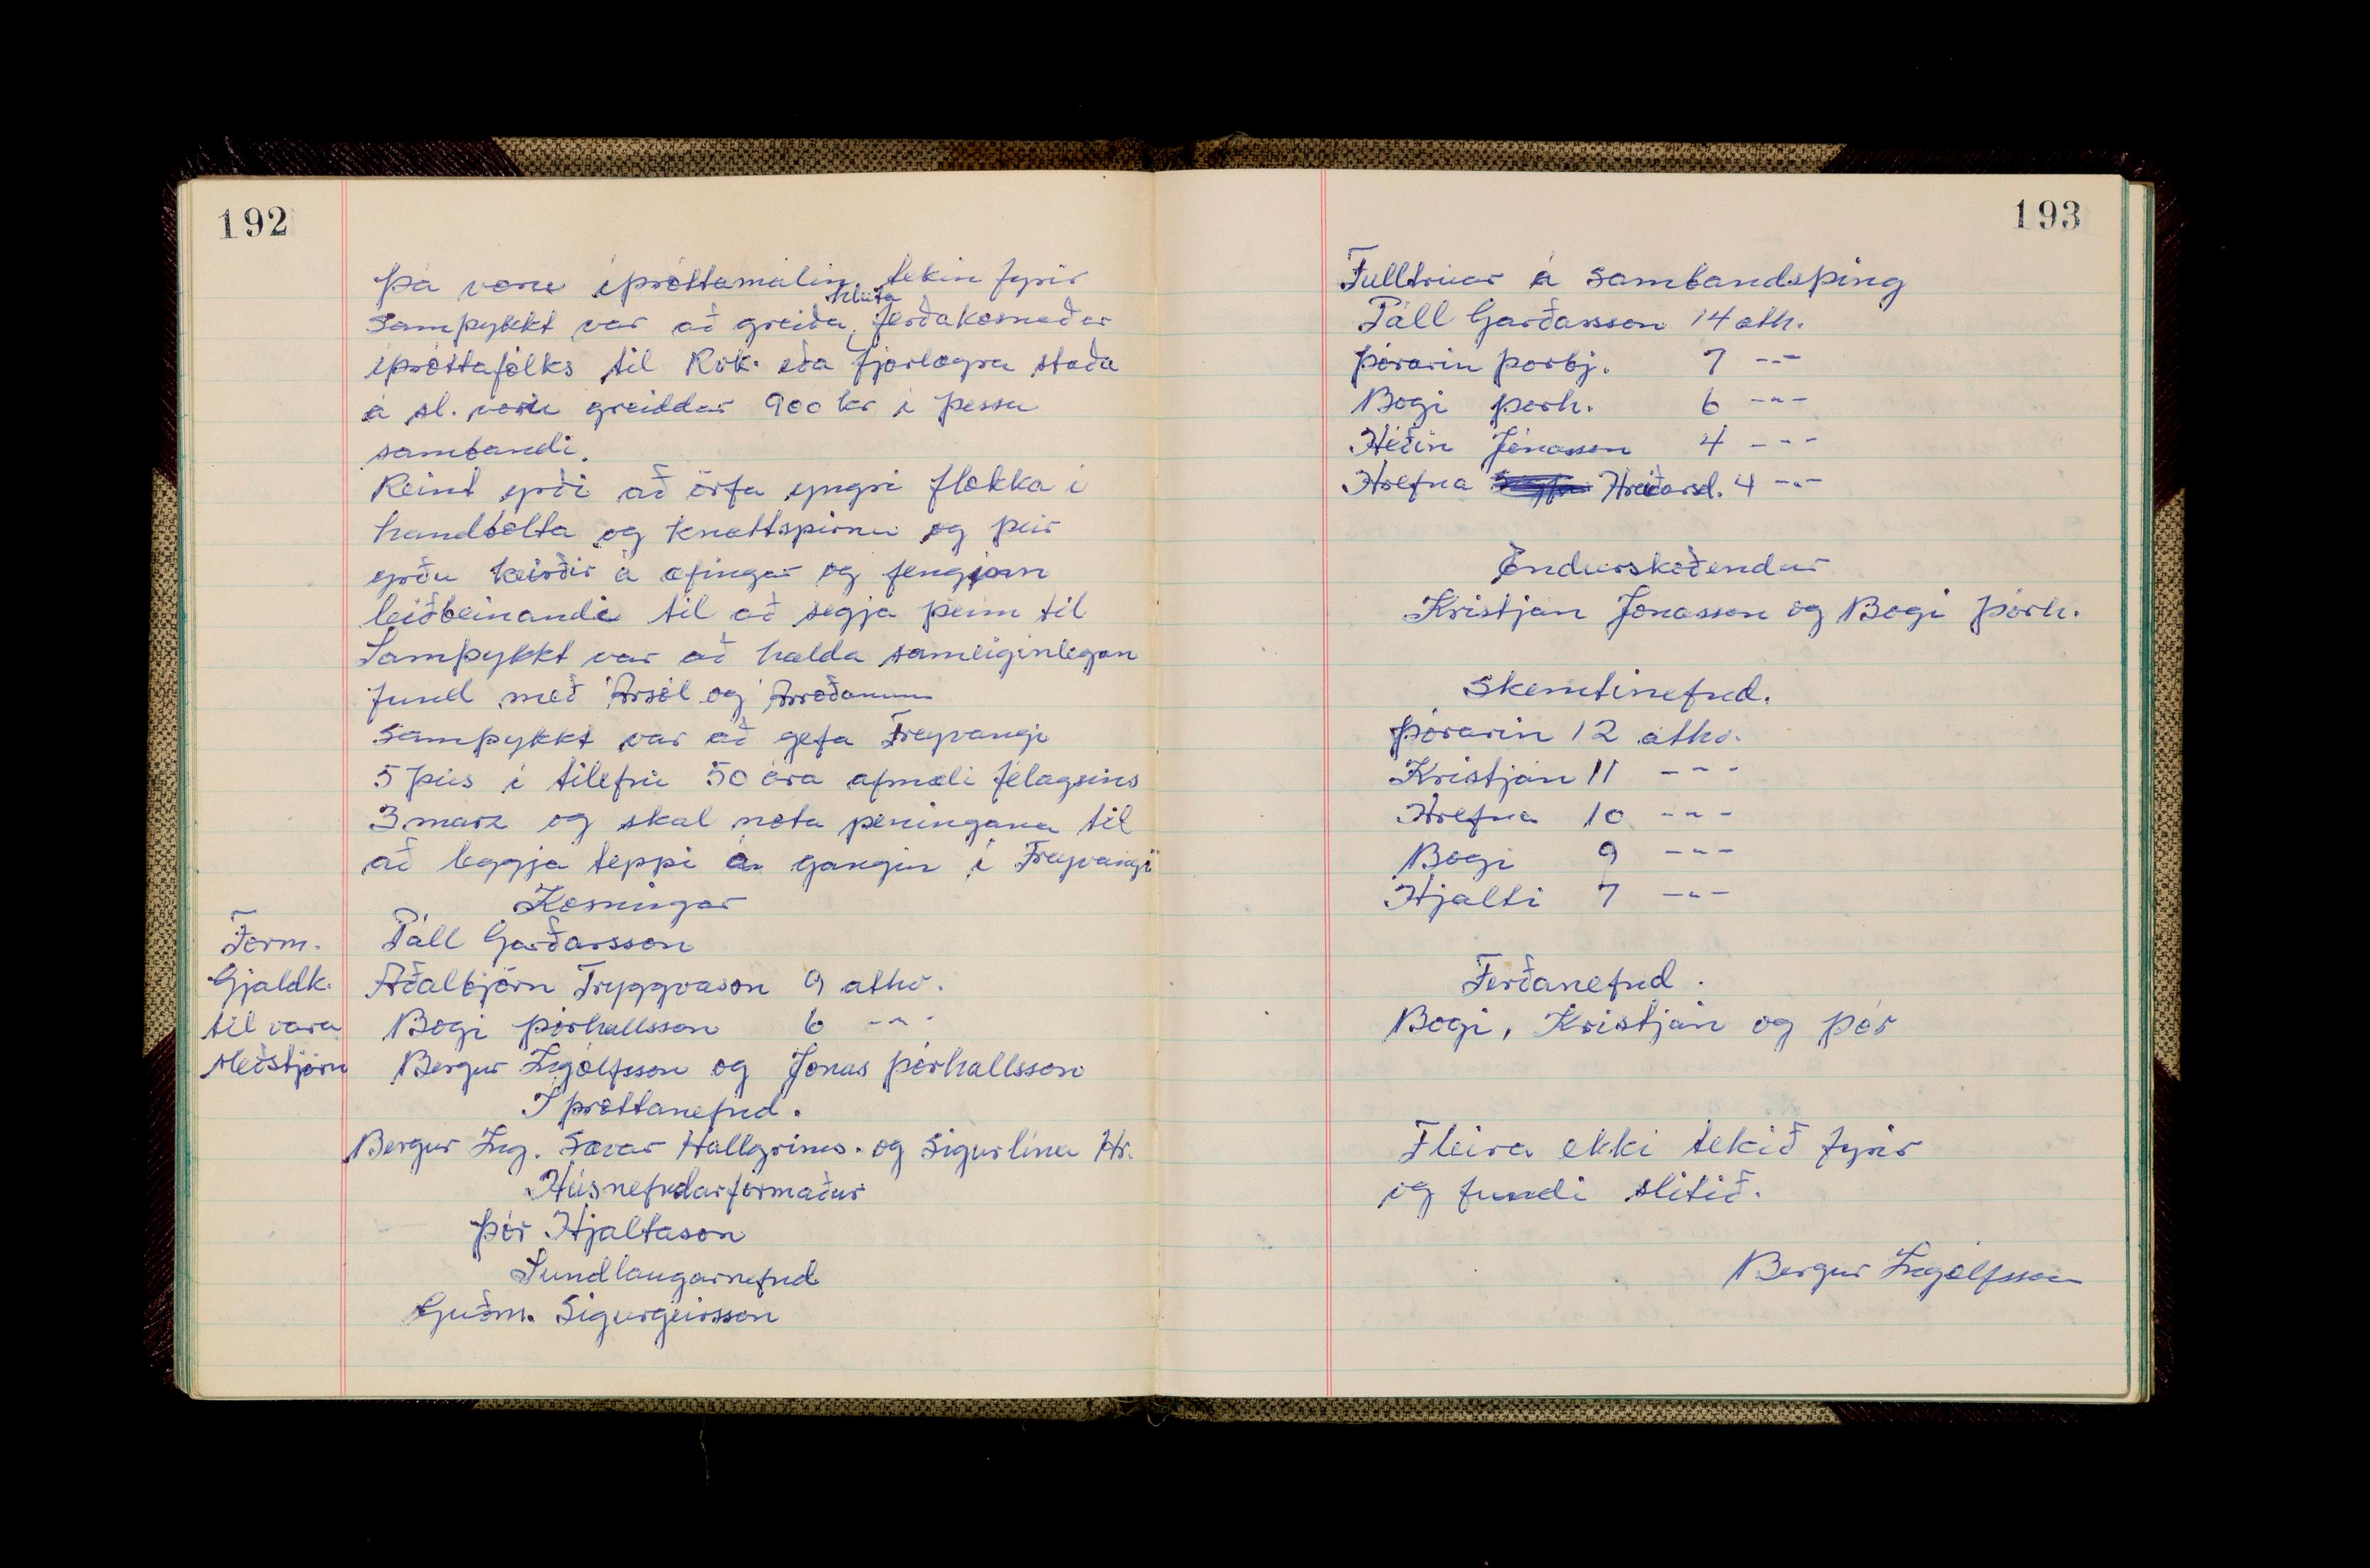 192
þá voru íþróttamálin tekin fyrir
Samþykkt var að greiða hluta ferðakosnaðar
íþróttafólks til Rvk. eða fjarlægra staða
á sl. voru greiddar 900 kr í þessu
sambandi.
Reint yrði að örfa yngri flokka í
handbolta og knattspirnu og þeir
yrðu keirðir á æfingar og fenginn
leiðbeinandi til að segja þeim til
Samþykkt var að halda sameiginlegan
fund með Ársól og Árroðanum
Samþykkt var að gefa Freyvangi
5 þús í tilefni 50 ára afmæli félagsins
3. marz og skal nota peningana til
að leggja teppi á gangin í Freyvangi
Kosningar
Form. Páll Garðarsson
Gjaldk. Aðalbjörn Tryggvason 9 atkv.
til vara Bogi Þórhallsson 6 -"-
Meðstjórn Bergur Ingólfsson og Jónas Þórhallsson
Íþróttanefnd.
Bergur Ing. Sævar Hallgríms. og Sigurlína Hr.
Húsnefndarformaður
Þór Hjaltason
Sundlaugarnefnd
Guðm. Sigurgeirsson
193
Fulltrúar á sambandsþing
Páll Garðarsson 14 atk.
Þórarin Þorbj. 7 -"-
Bogi Þórh. 6 -"-
Héðin Jónasson 4 -"-
Hrefna Hreiðarsd. 4 -"-
Endurskoðendur
Kristján Jónasson og Bogi Þórh.
Skemtinefnd.
Þórarin 12 atkv.
Kristján 11 -"-
Hrefna 10 -"-
Bogi 9 -"-
Hjalti 7 -"-
Ferðanefnd.
Bogi, Kristján og Þór
Fleira ekki tekið fyrir
og fundi slitið.
Bergur Ingólfsson